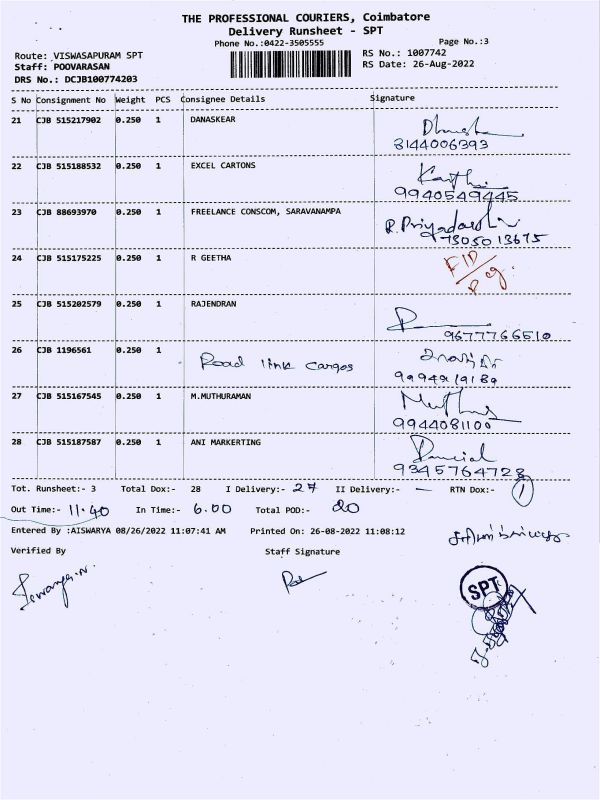 THE PROFESSIONAL COURIERS, Coimbatore
Delivery Runsheet - SPT
Phone No.:0422-3505555
Page No.:3
Route: VISWASAPURAM SPT
RS No.: 1007742
Staff: POOVARASAN
RS Date: 26-Aug-2022
DRS No.: DCJB100774203
S No Consignment No Weight PCS Consignee Details Signature
21 CJB 515217902 0.250 1 DANASKEAR
8144006393
22 CJB 515188532 0.250 1 EXCEL CARTONS
9940549445
23 CJB 88693970 0.250 1 FREELANCE CONSCOM, SARAVANAMPA
7305013675
24 CJB 515175225 0.250 1 R GEETHA
25 CJB 515202579 0.250 1 RAJENDRAN
9677766510
26 CJB 1196561 0.250 1 Road link cargos
27 CJB 515167545 0.250 1 M.MUTHURAMAN
9944081100
28 CJB 515187587 0.250 1 ANI MARKERTING
9345764728
Tot. Runsheet:- 3 Total Dox:- 28 I Delivery:- 27 II Delivery:- — RTN Dox:- 1
Out Time:- 11.40 In Time:- 6.00 Total POD:- 20
Entered By :AISWARYA 08/26/2022 11:07:41 AM Printed On: 26-08-2022 11:08:12
Verified By Staff Signature
SPT